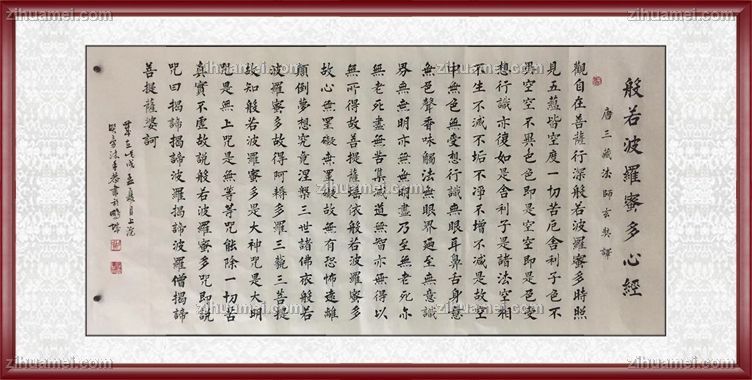 般若波羅蜜多心經
唐三藏法師玄奘譯
觀自在菩薩行深般若波羅蜜多時照
見五蘊皆空度一切苦厄舍利子色不
異空空不異色色即是空空即是色受
想行識亦復如是舍利子是諸法空相
不生不滅不垢不凈不增不減是故空
中無色無受想行識無眼耳鼻舌身意
無色聲香味觸法無眼界迺至無意識
界無無明亦無無明盡乃至無老死亦
無老死盡無苦集滅道無智亦無得以
無所得故菩提薩埵依般若波羅蜜多
故心無罣礙無罣礙故無有恐怖遠離
顛倒夢想究竟涅槃三世諸佛依般若
波羅蜜多故得阿耨多羅三藐三菩提
故知般若波羅蜜多是大神咒是大明
咒是無上咒是無等等咒能除一切苦
真實不虛故說般若波羅蜜多咒即說
咒曰揭諦揭諦波羅揭諦波羅僧揭諦
菩提薩婆訶
zihuamei.com
zihuamei.com
zihuamei.com
zihuamei.com
zihuamei.com
zihuamei.com
zihuamei.com
zihuamei.com
zihuamei.com
zihuamei.com
zihuamei.com
zihuamei.com